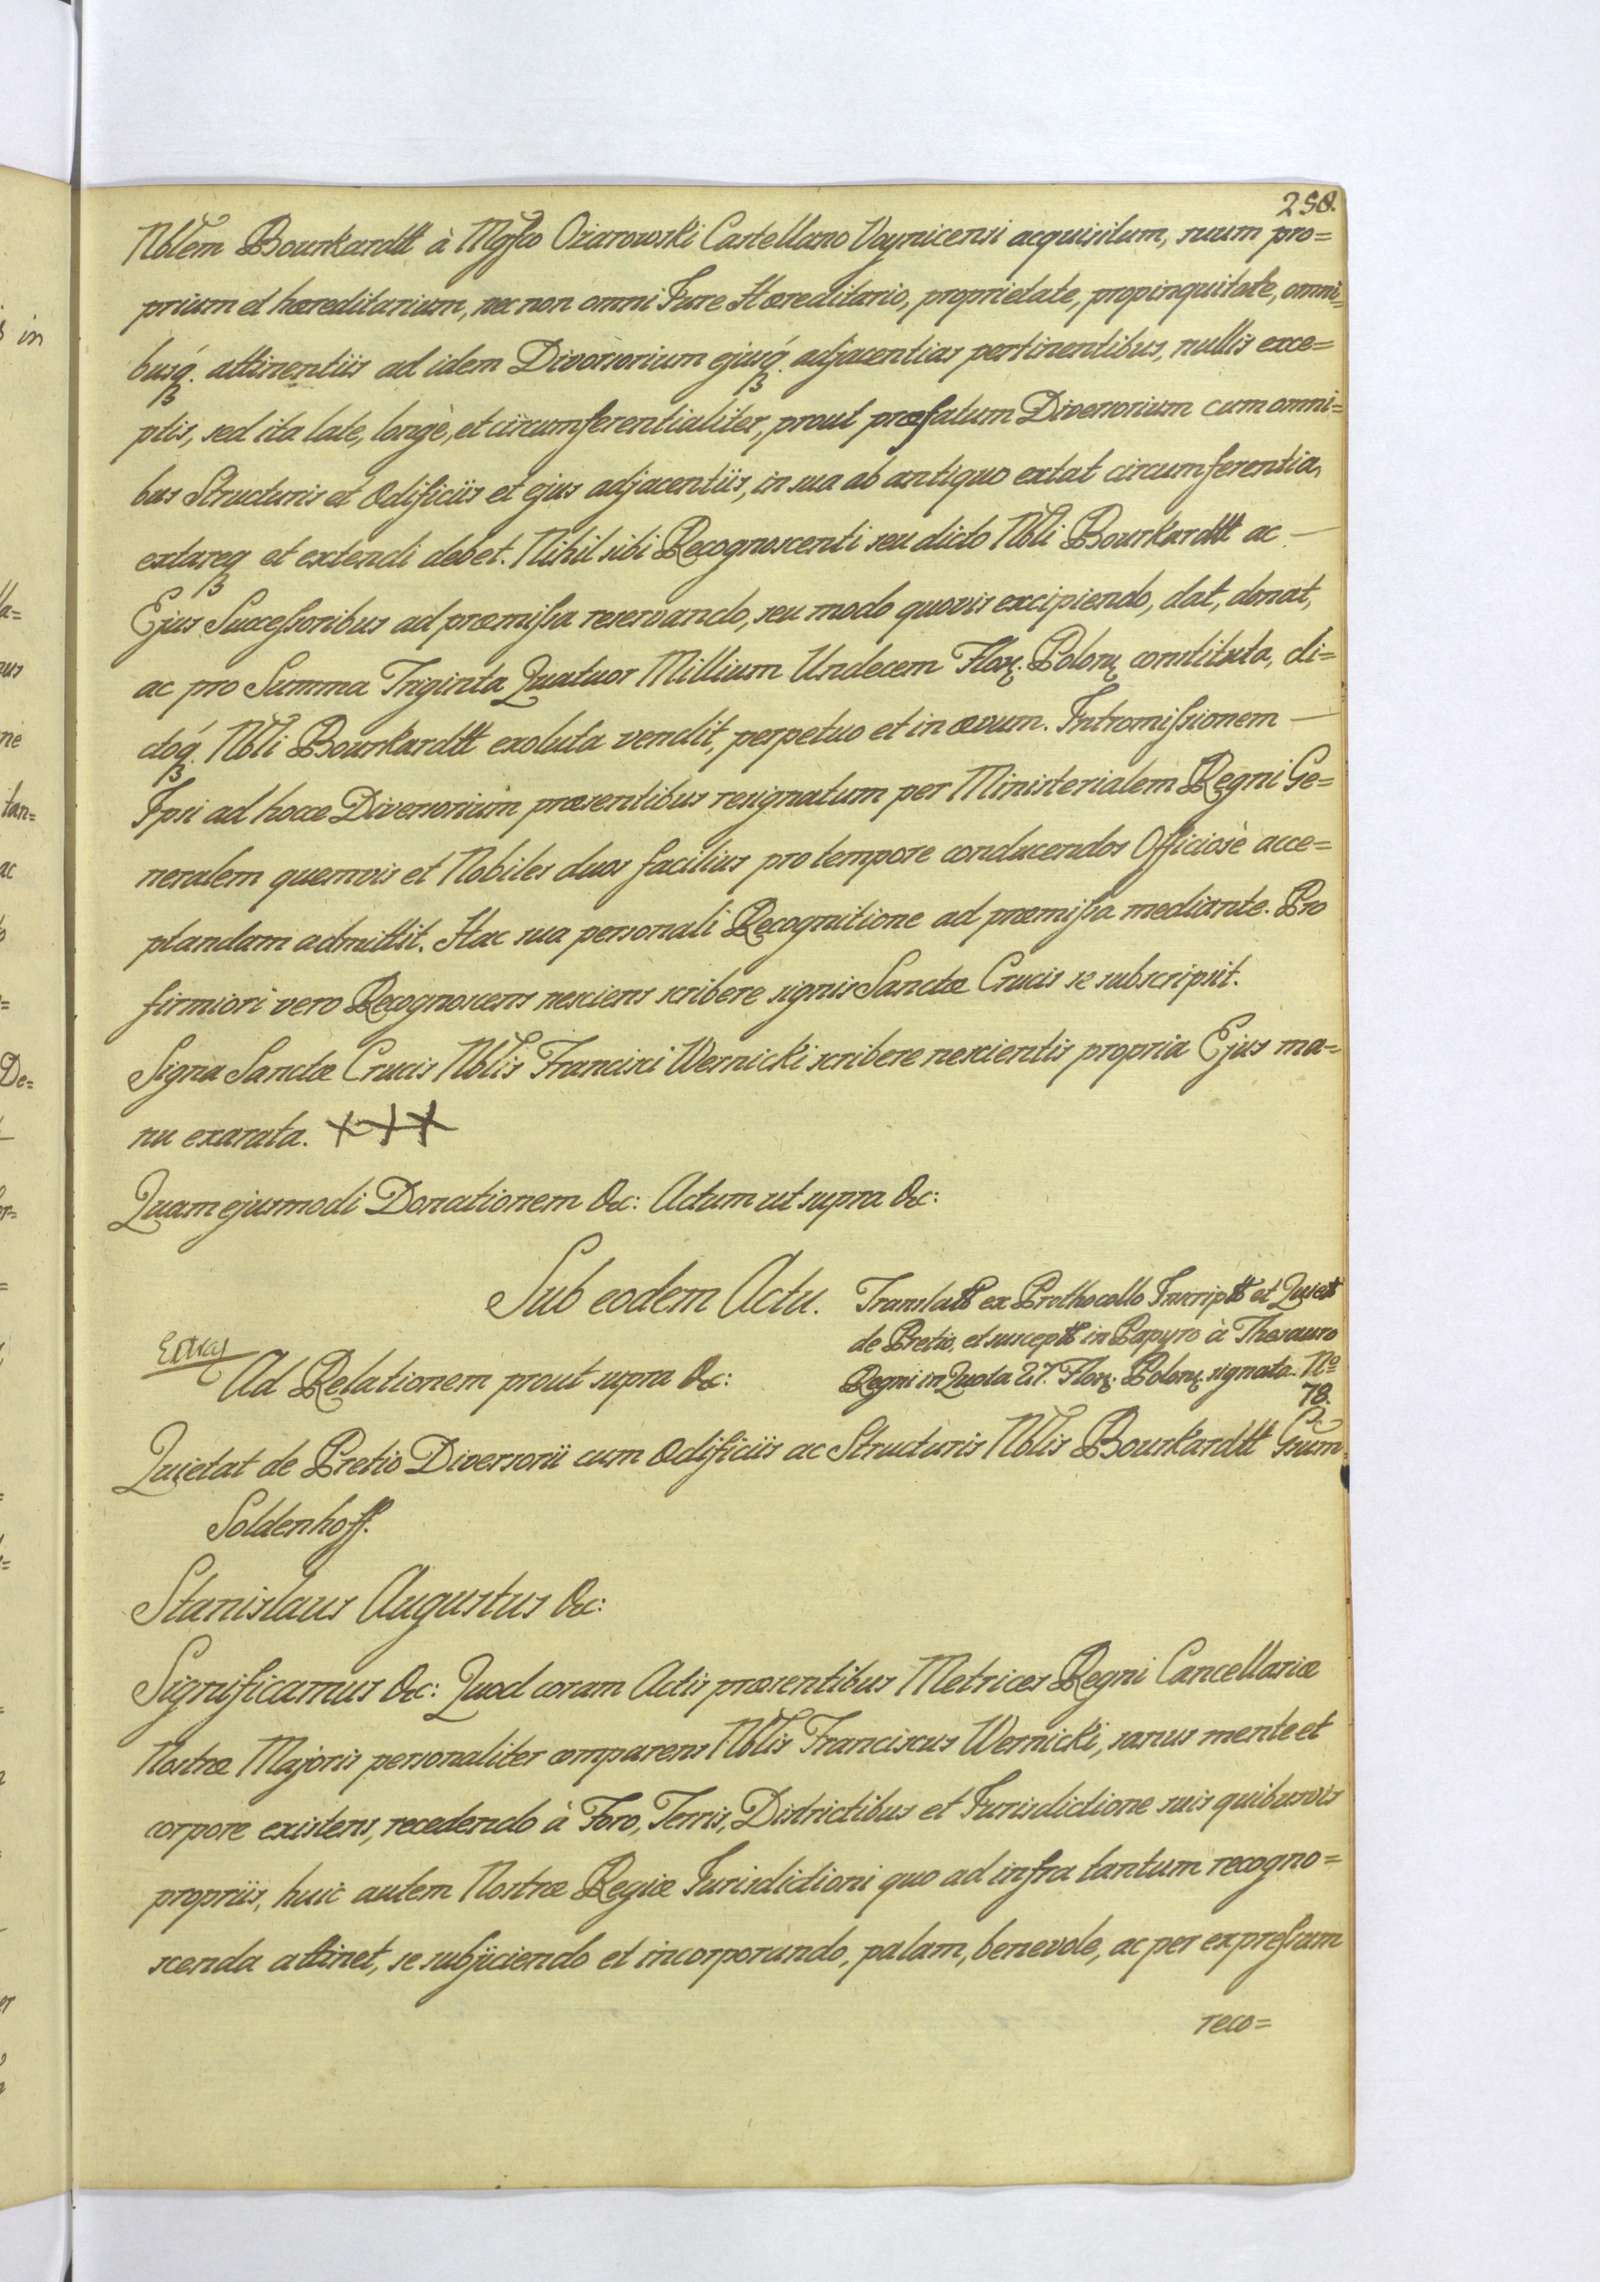 258.
Nblem Bourkardtt à Mgfco Ożarowski Castellano Voynicensi acquisitum, suum pro=
prium et hæreditarium, nec non omni Jure Hæreditario, proprietate, propinquitate, omni=
busq́. attinentiis ad idem Diversorium ejusq́. adjacentias pertinentibus, nullis exce=
ptis, sed ita late, longè, et circumferentialiter, prout præfatum Diversorium cum omni=
bus Structuris et Ædificiis et ejus adjacentiis, in sua ab antiquo extat circumferentia,
extareq et extendi debet. Nihil sibi Recognoscenti seu dicto Nbli Bourkardtt ac —
Ejus Successoribus ad præmissa reservando, seu modo quovis excipiendo, dat, donat,
ac pro Summa Triginta Quatuor Millium Undecem Flor. Polon. constituta, di=
ctoq́. Nbli Bourkardtt exoluta vendit, perpetuo et in ævum. Intromissionem —
Ipsi ad hocce Diversorium præsentibus resignatum per Ministerialem Regni Ge=
neralem quemvis et Nobiles duos facilius pro tempore conducendos Officiosè acce=
ptandam admittit. Hac sua personali Recognitione ad præmissa mediante. Pro
firmiori vero Recognoscens nesciens scribere signis Sanctæ Crucis se subscripsit.
Signa Sanctæ Crucis Nblis Francisci Wernicki scribere nescientis propria Ejus ma=
nu exarata. XXX
Quam ejusmodi Donationem &c: Actum ut supra &c:
Sub eodem Actu.
Translatt ex Prothocollo Inscriptt et Quiett
de Pretio, et susceptt in Papyro à Thesauro
Regni in Quota 27. Flor. Polon. signata. No
78.
Extras
Ad Relationem prout supra &c:
Quietat de Pretio Diversorii cum Ædificiis ac Structuris Nblis Bourkardtt Gsum
Soldenhoff.
Stanislaus Augustus &c:
Significamus &c: Quod coram Actis præsentibus Metrices Regni Cancellariæ
Nostræ Majoris personaliter comparens Nblis Franciscus Wernicki, sanus mente et
corpore existens, recedendo à Foro, Terris, Districtibus et Jurisdictione suis quibusvis
propriis, huic autem Nostræ Regiæ Jurisdictioni quo ad infra tantum recogno=
scenda attinet, se subjiciendo et incorporando, palam, benevole, ac per expressum
reco=